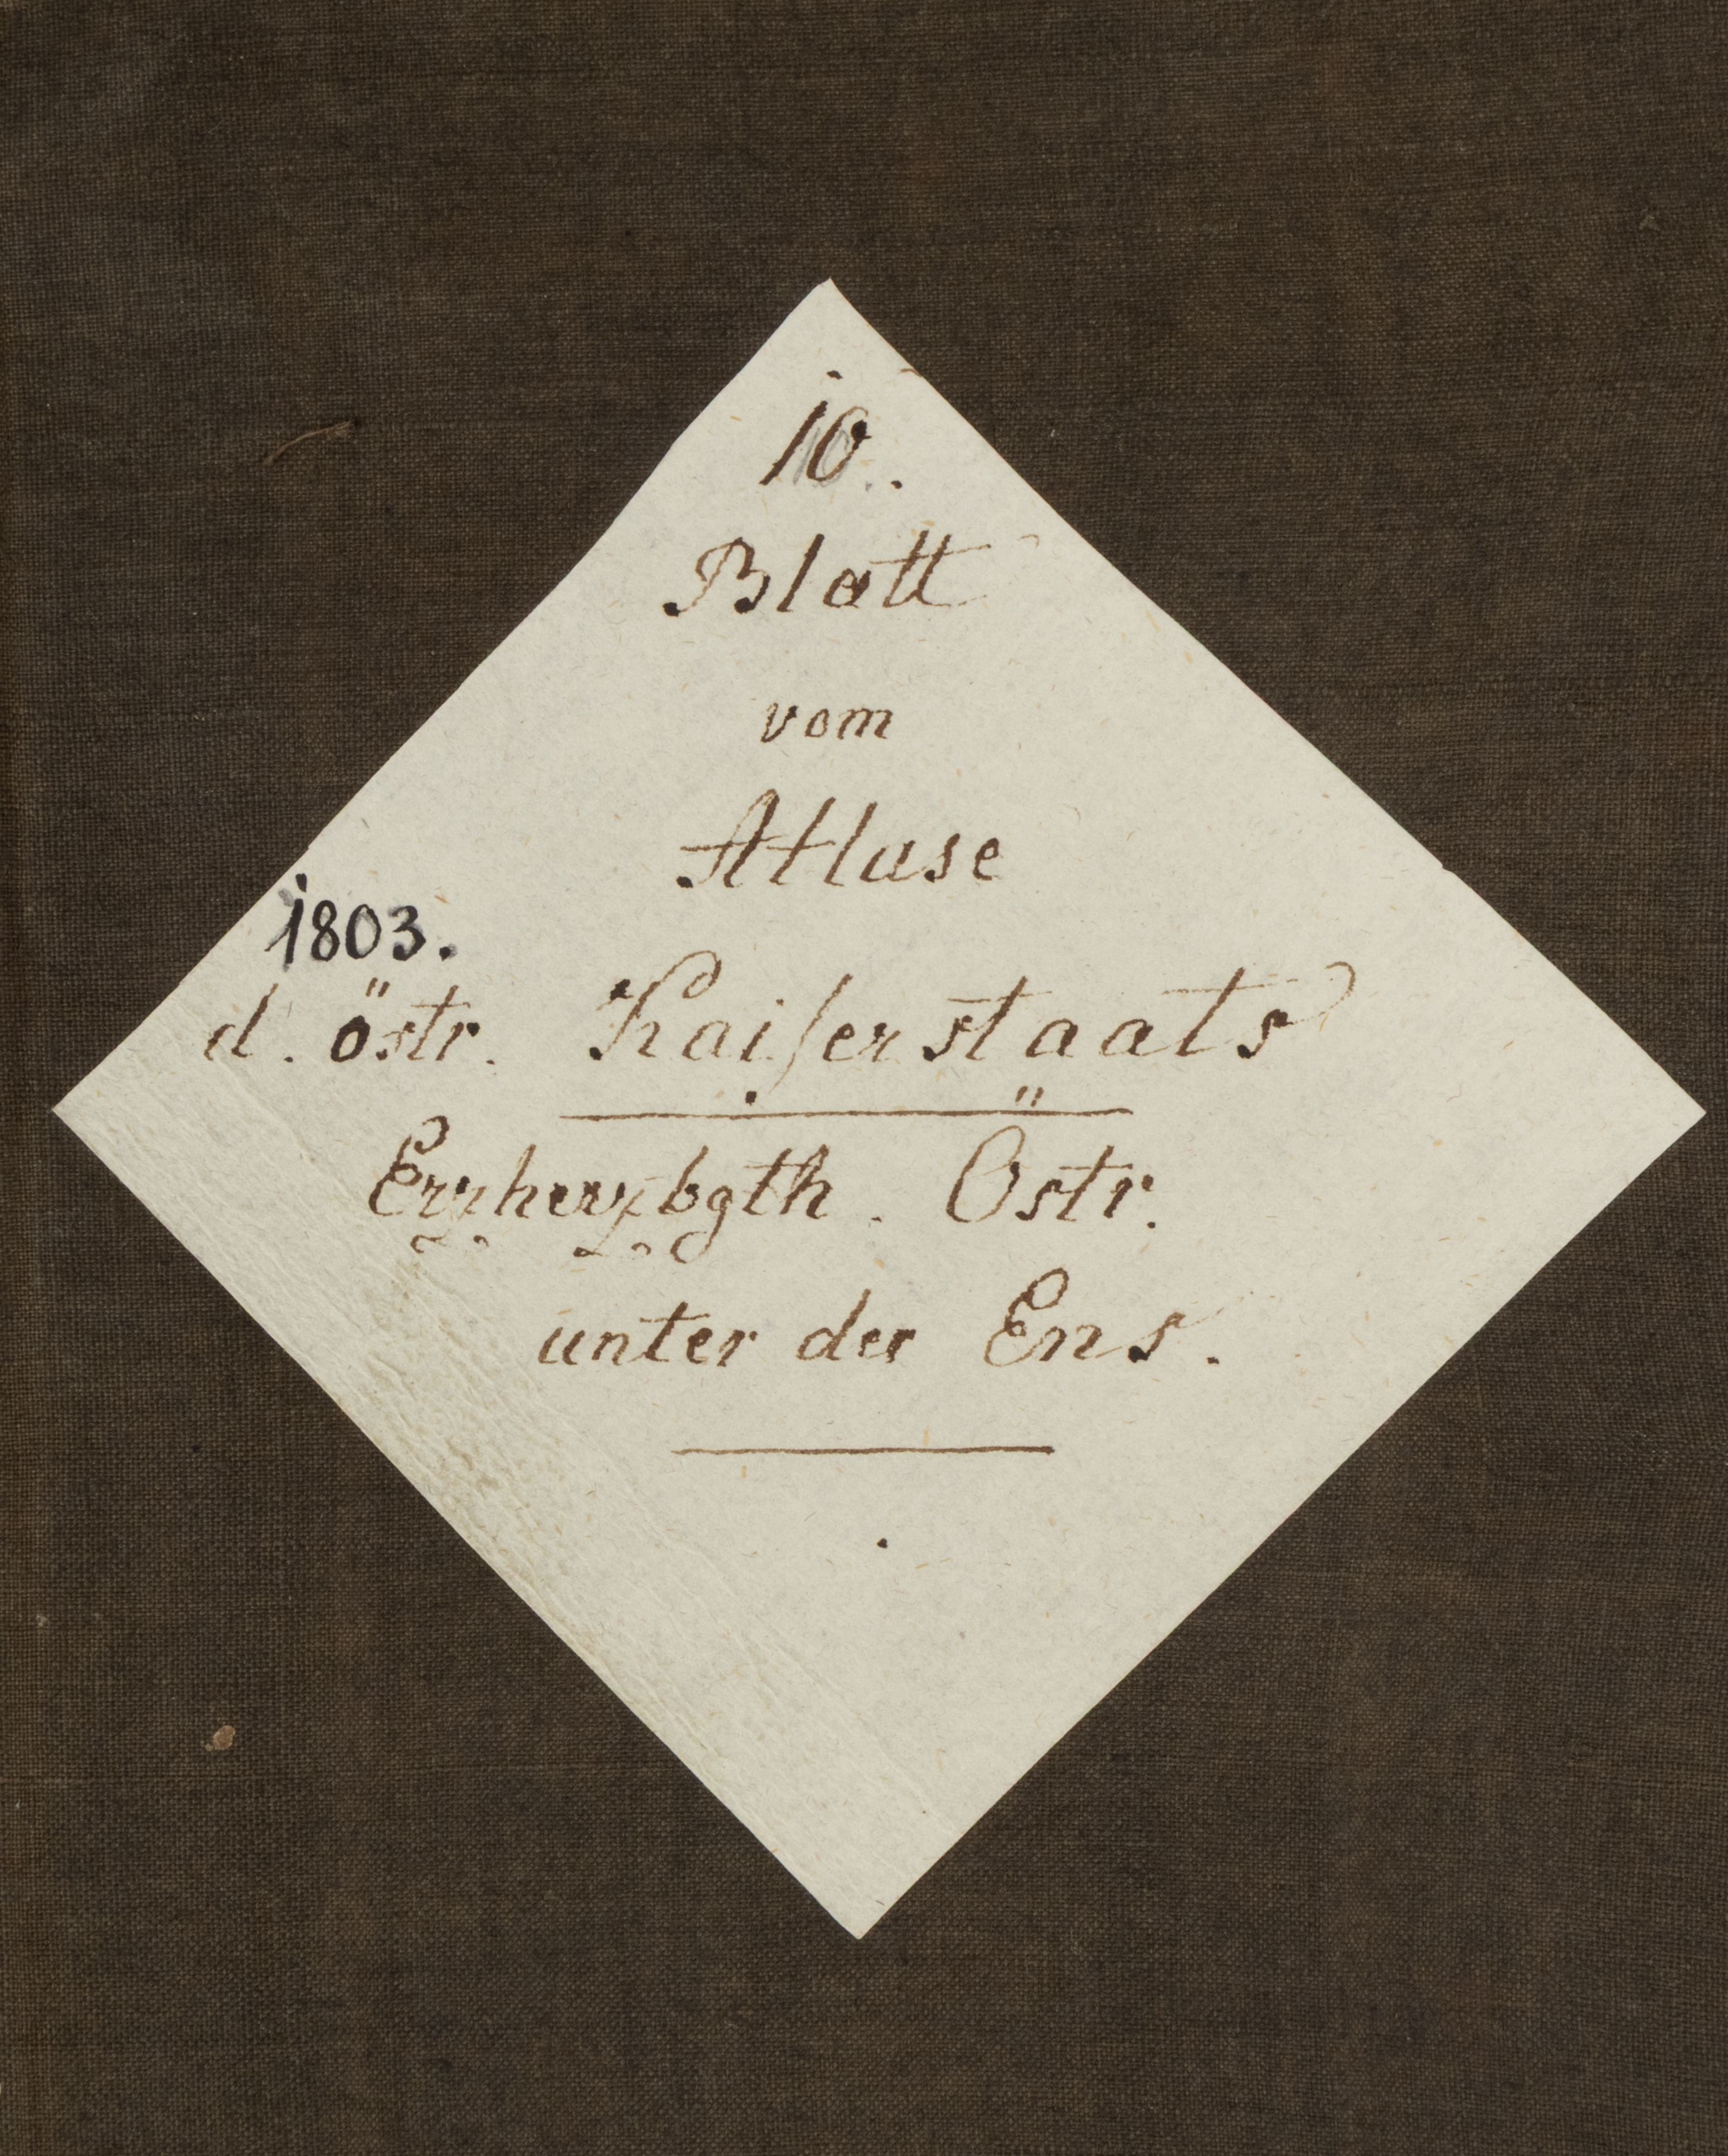 10.
Blatt
vom
Atlase
1803.
d. östr. Kaiserstaats
Erzherzogth. Östr.
unter der Ens.